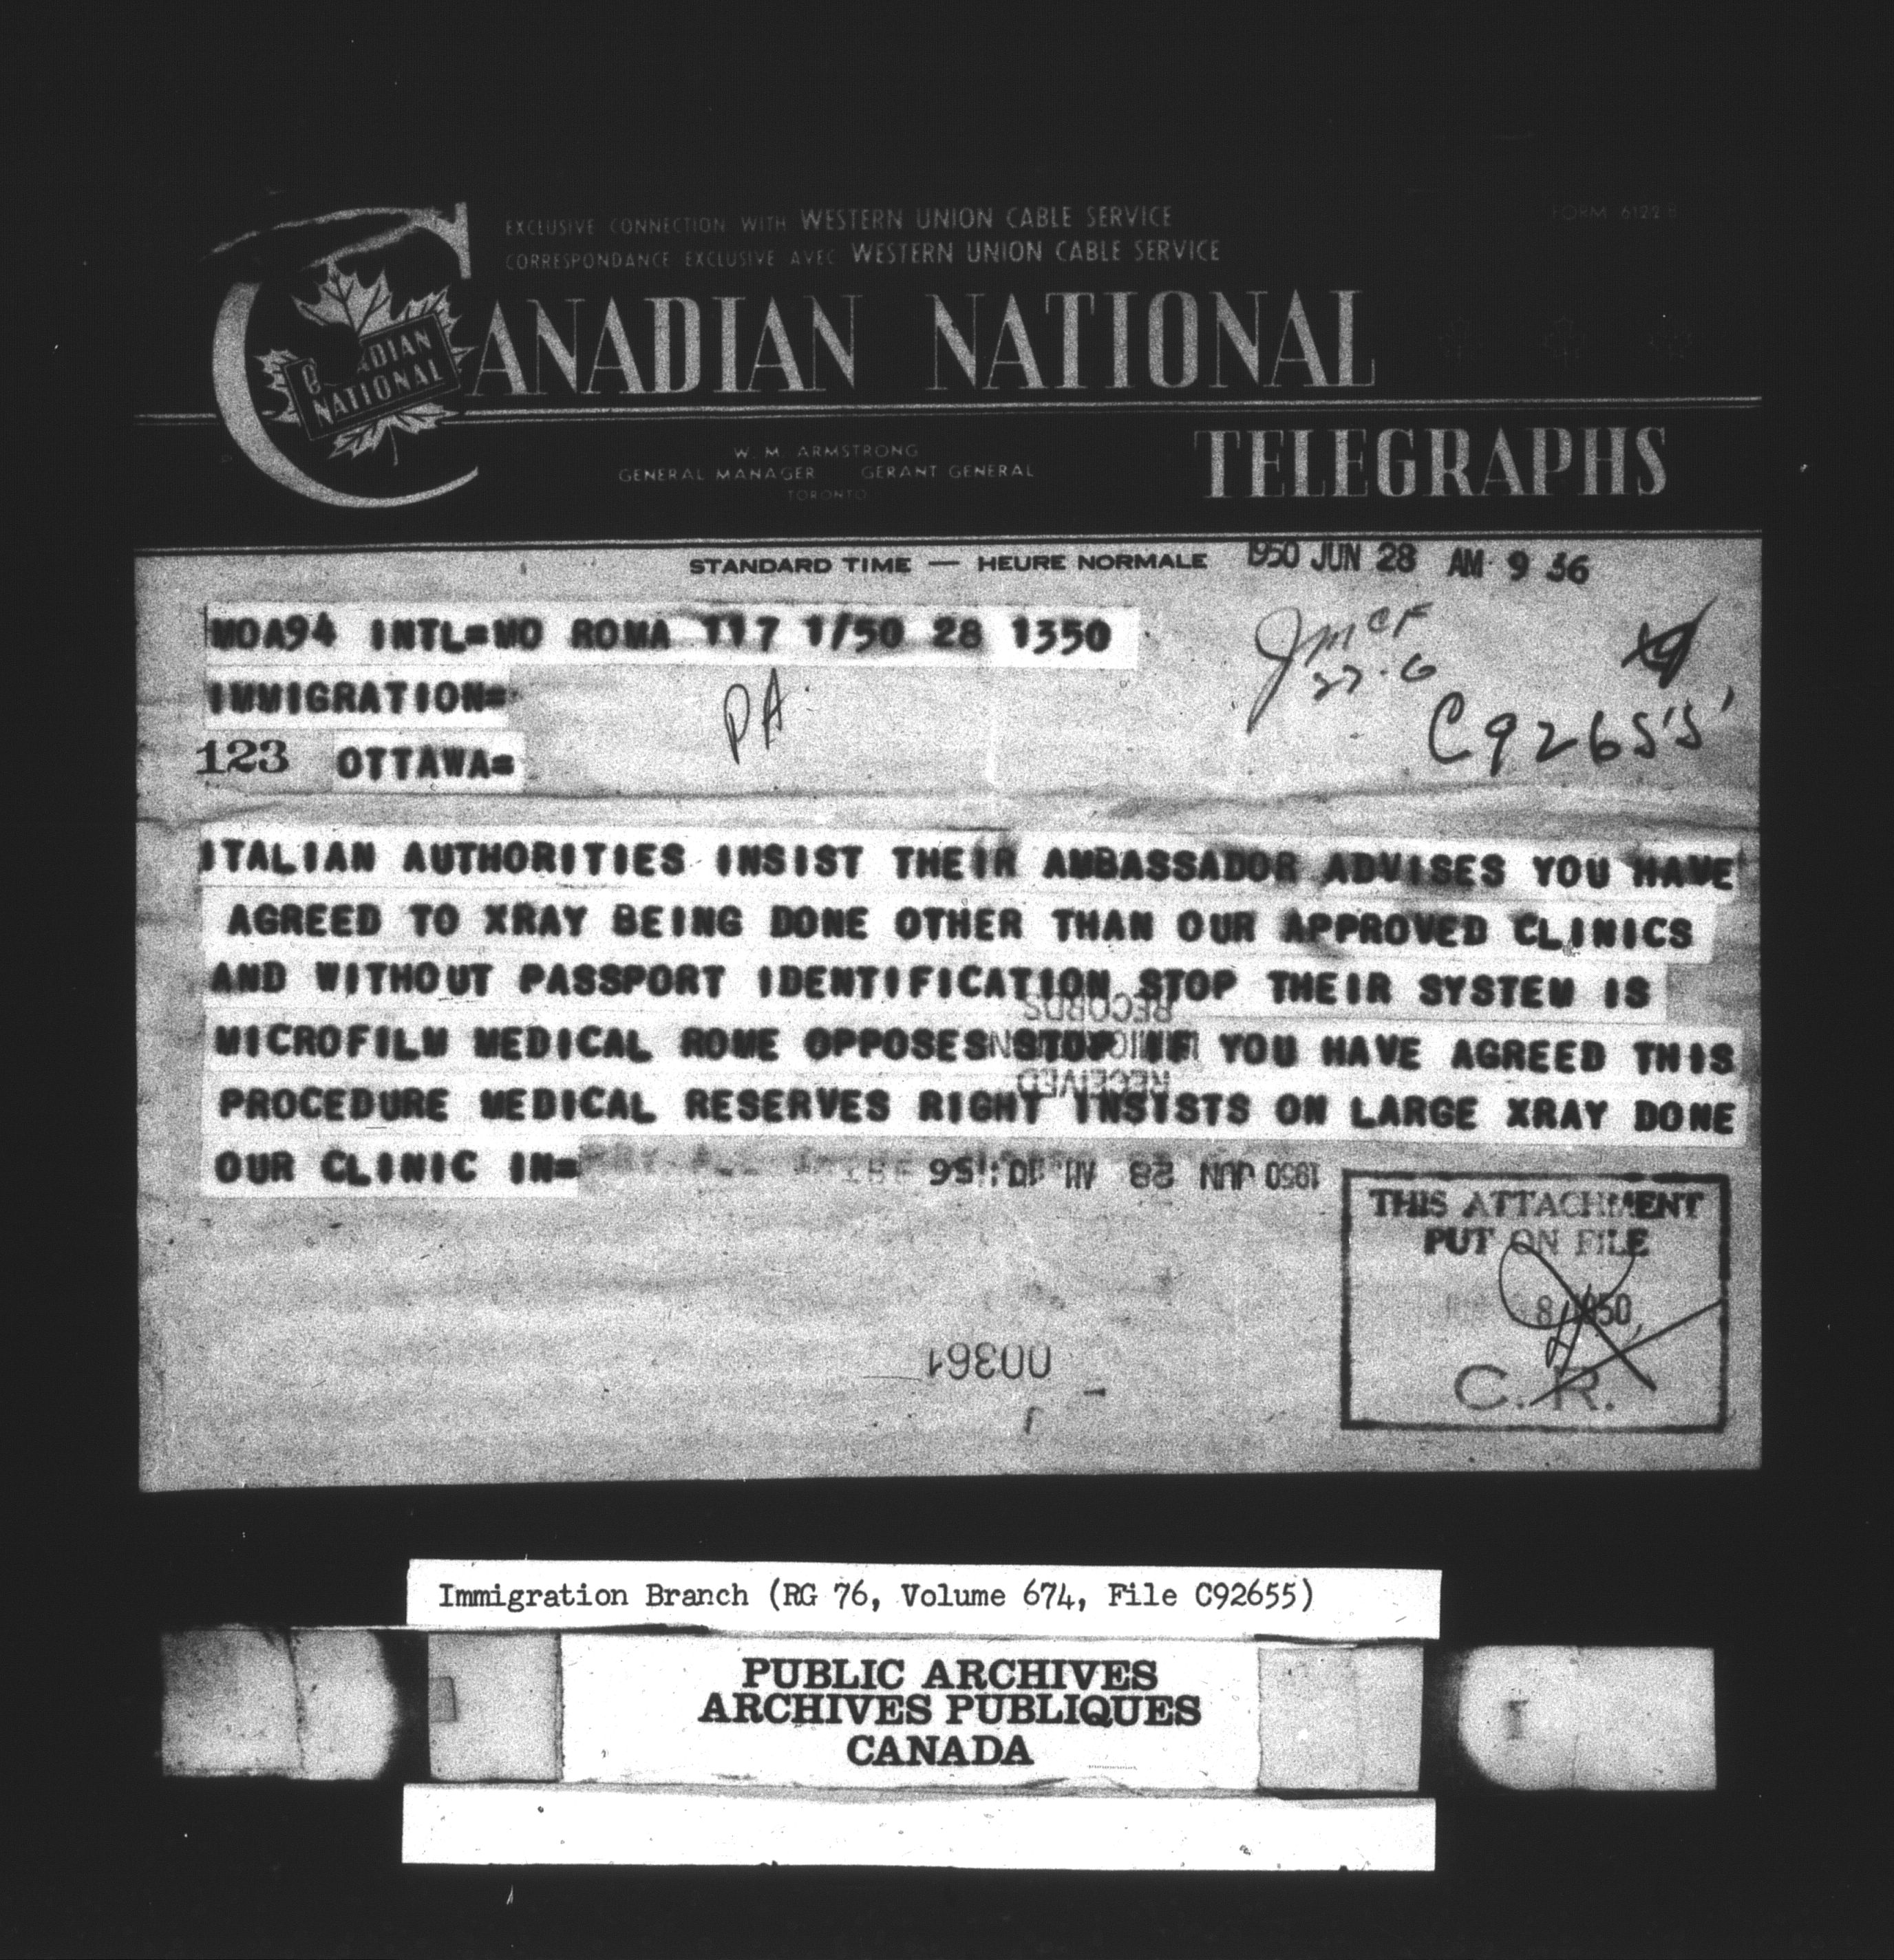 EXCLUSIVE CONNECTION WITH WESTERN UNION CABLE SERVICE
CORRESPONDANCE EXCLUSIVE AVEC WESTERN UNION CABLE SERVICE
FORM 6122 B
CANADIAN NATIONAL
NATIONAL
TELEGRAPHS
W. M. ARMSTRONG
GENERAL MANAGER GERANT GENERAL
TORONTO
STANDARD TIME — HEURE NORMALE 1950 JUN 28 AM 9 36
MOA94 INTL=MO ROMA 117 1/50 28 1350
JMCF
27.6
IMMIGRATION=
PA
C92655
123 OTTAWA=
ITALIAN AUTHORITIES INSIST THEIR AMBASSADOR ADVISES YOU HAVE
AGREED TO XRAY BEING DONE OTHER THAN OUR APPROVED CLINICS
AND WITHOUT PASSPORT IDENTIFICATION STOP THEIR SYSTEM IS
RECORDS
MICROFILM MEDICAL ROME OPPOSES STOP IF YOU HAVE AGREED THIS
RECEIVED
PROCEDURE MEDICAL RESERVES RIGHT INSISTS ON LARGE XRAY DONE
OUR CLINIC IN=
1950 JUN 28 AM 10:56
THIS ATTACHMENT
PUT ON FILE
8 1950
C. R.
00361
Immigration Branch (RG 76, Volume 674, File C92655)
PUBLIC ARCHIVES
ARCHIVES PUBLIQUES
CANADA